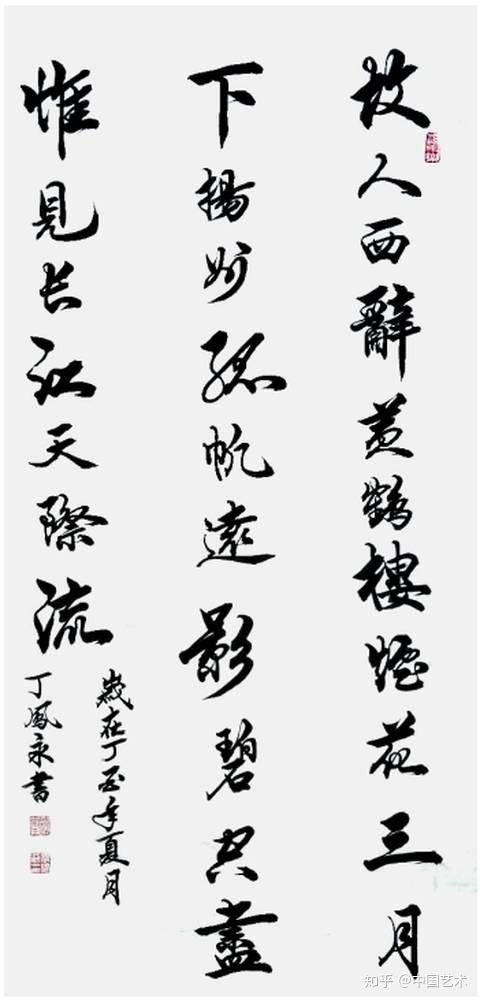 故人西辭黃鶴樓煙花三月
下揚州孤帆遠影碧空盡
惟見长江天際流
歲在丁酉年夏月
丁鳳永書
知乎 @中国艺术